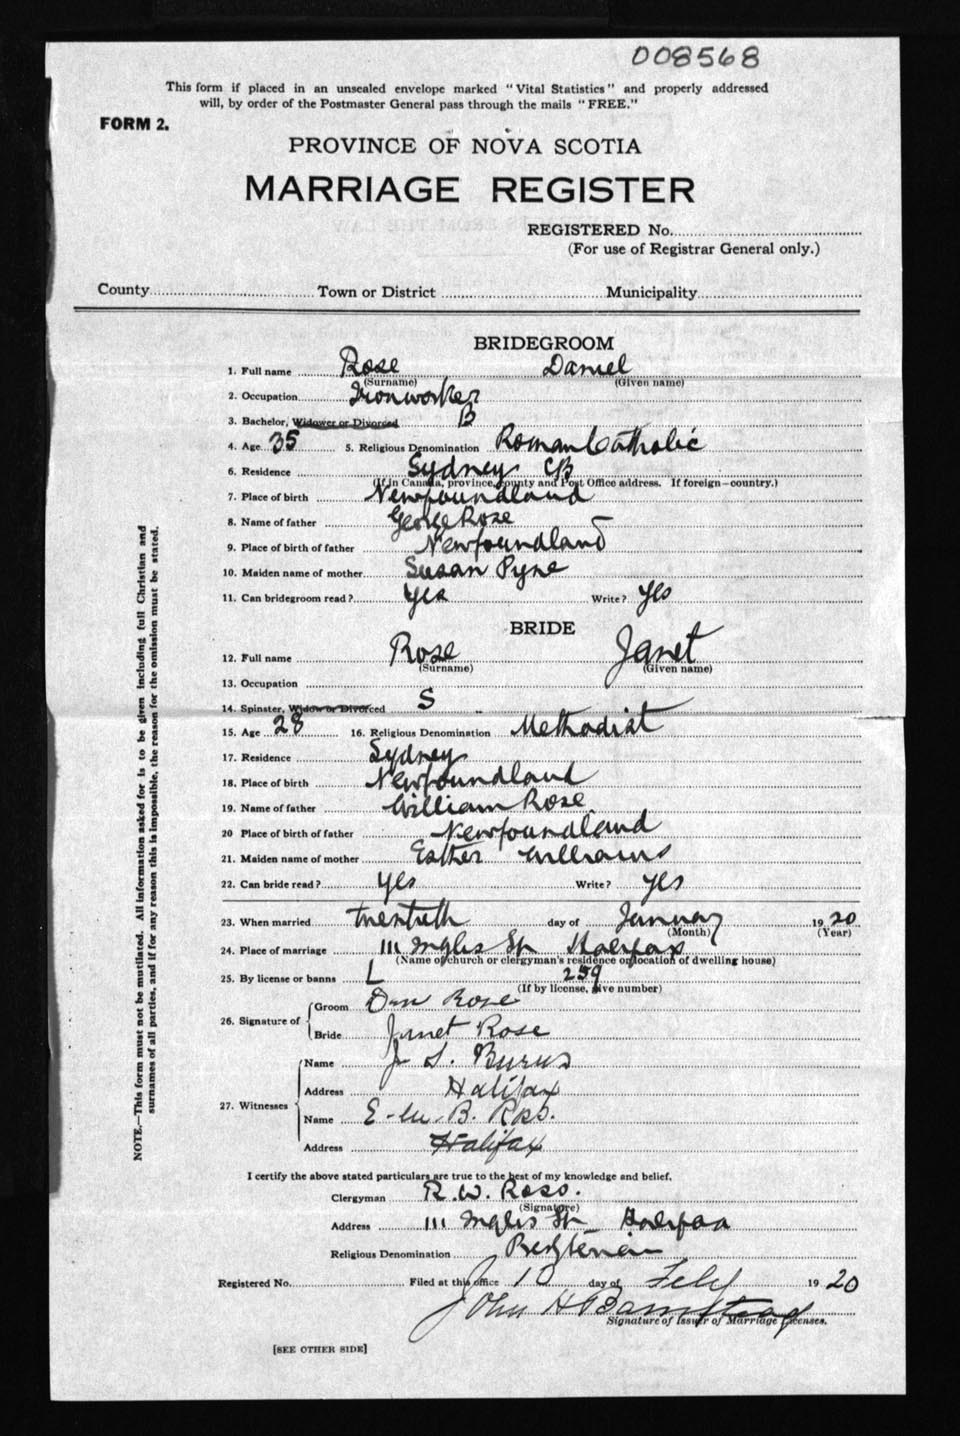 008568
This form if placed in an unsealed envelope marked "Vital Statistics" and properly addressed
will, by order of the Postmaster General pass through the mails "FREE."
FORM 2.
PROVINCE OF NOVA SCOTIA
MARRIAGE REGISTER
REGISTERED No.
(For use of Registrar General only.)
County Town or District Municipality
BRIDEGROOM
1. Full name Rose Daniel
(Surname) (Given name)
2. Occupation Ironworker
3. Bachelor, Widower or Divorced B
4. Age 35 5. Religious Denomination Roman Catholic
6. Residence Sydney CB
(If in Canada, province, county and Post Office address. If foreign—country.)
7. Place of birth Newfoundland
8. Name of father George Rose
9. Place of birth of father Newfoundland
10. Maiden name of mother Susan Pyne
11. Can bridegroom read? Yes Write? Yes
BRIDE
12. Full name Rose Janet
(Surname) (Given name)
13. Occupation
14. Spinster, Widow or Divorced S
15. Age 28 16. Religious Denomination Methodist
17. Residence Sydney
18. Place of birth Newfoundland
19. Name of father William Rose
20 Place of birth of father Newfoundland
21. Maiden name of mother Esther Williams
22. Can bride read? Yes Write? Yes
23. When married twentieth day of January 1920
(Month) (Year)
24. Place of marriage 111 Inglis St Halifax
(Name of church or clergyman's residence or location of dwelling house)
25. By license or banns L 259
(If by license, give number)
26. Signature of Groom Dan Rose
Bride Janet Rose
27. Witnesses Name J S. Burns
Address Halifax
Name B. Ross.
Address Halifax
I certify the above stated particulars are true to the best of my knowledge and belief.
Clergyman R. W. Ross.
(Signature)
Address 111 Inglis St Halifax
Religious Denomination Presbyterian
Registered No. Filed at this office 10 day of Feby 1920
John H Barnstead
Signature of Issuer of Marriage Licenses.
[SEE OTHER SIDE]
NOTE.—This form must not be mutilated. All information asked for is to be given including full Christian and
surnames of all parties, and if for any reason this is impossible, the reason for the omission must be stated.